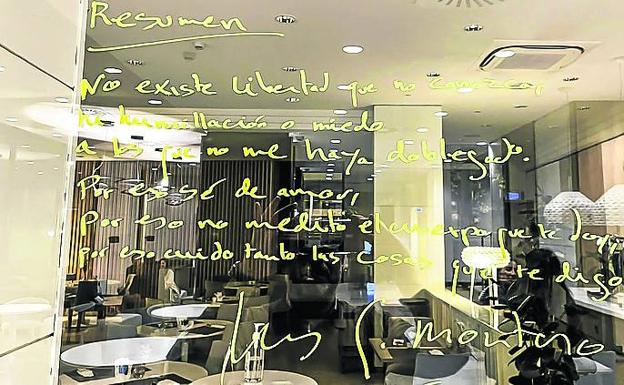 Resumen
No existe libertad que no conozca,
ni humillación o miedo
a los que no me haya doblegado.
Por eso sé de amor,
por eso no medito el cuerpo que te doy,
por eso cuido tanto las cosas que te digo.
Luis G. Montero